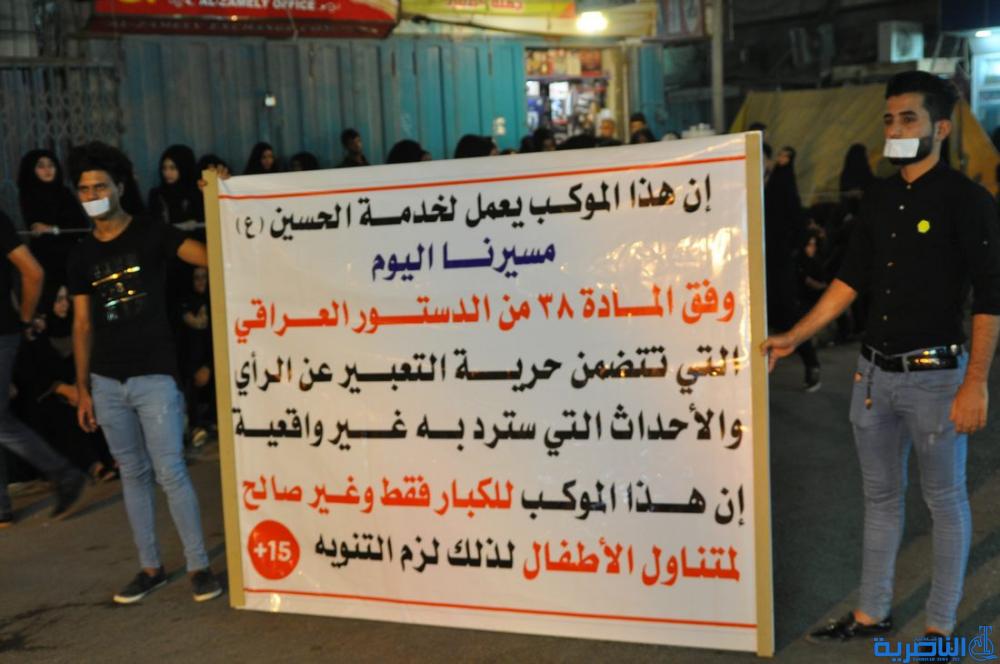 AL-ZAMELY OFFICE
إن هذا الموكب يعمل لخدمة الحسين (ع)
مسيرنا اليوم
وفق المادة ٣٨ من الدستور العراقي
التي تتضمن حرية التعبير عن الرأي
والأحداث التي سترد به غير واقعية
إن هذا الموكب للكبار فقط وغير صالح
لمتناول الأطفال لذلك لزم التنويه
+15
شبكة أخبار الناصرية